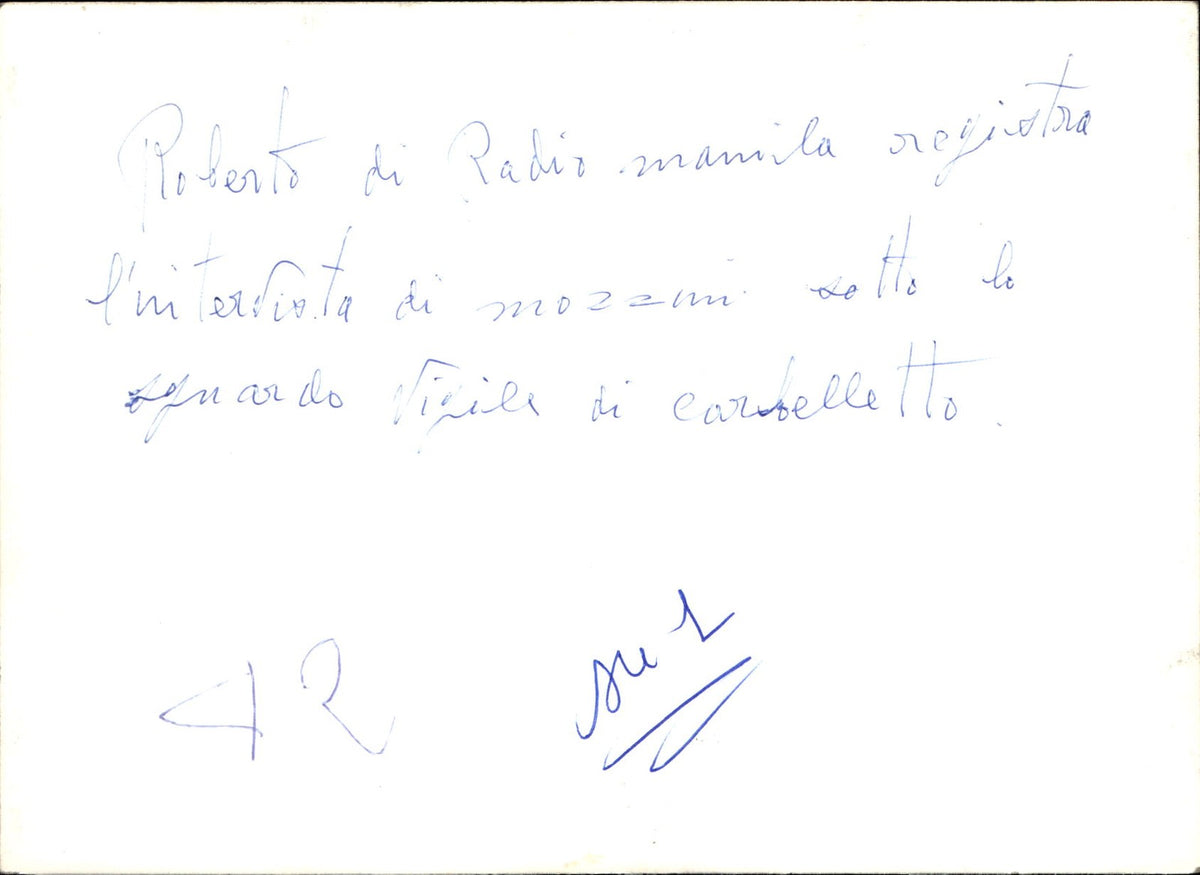 Roberto di Radio manila registra
l'intervista di mozzini sotto lo
sguardo vigile di carbelletto.
42
su 2